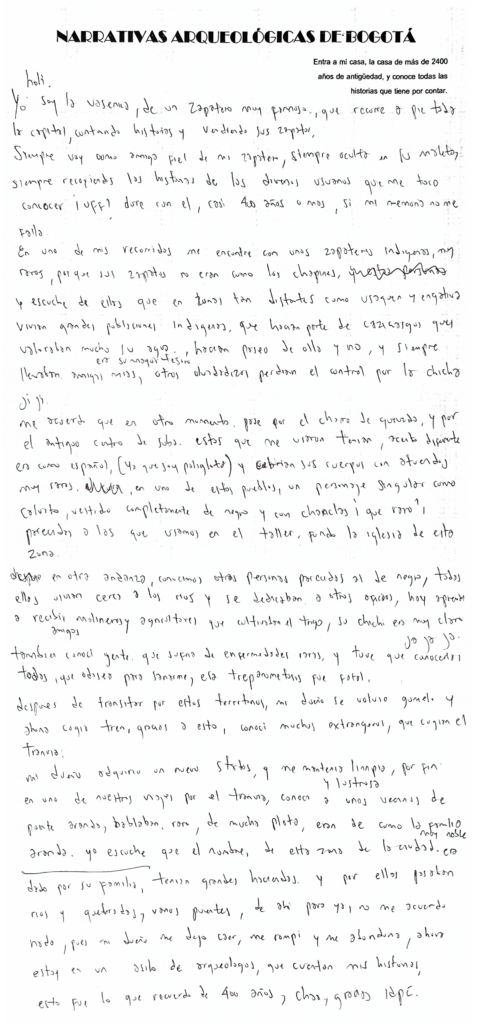 NARRATIVAS ARQUEOLÓGICAS DE BOGOTÁ
Entra a mi casa, la casa de más de 2400
años de antigüedad, y conoce todas las
historias que tiene por contar.
holi.
Yo soy la vasenia, de un zapatero muy famoso, que recorre a pie toda
la capital, contando historias y vendiendo sus zapatos,
Siempre voy como amiga fiel de mi zapatero, siempre oculta en su maleta,
siempre recogiendo las historias de los diversos usuarios que me toco
conocer ¡uff! dure con el, casi 400 años o mas, si mi memoria no me
falla.
En uno de mis recorridos me encontre con unos zapateros indigenas, muy
raros, porque sus zapatos no eran como los chapines,
y escuche de ellos que en zonas tan distantes como usaquen y engativa
vivian grandes poblaciones indigenas, que hacian parte de cacicazgos que
valoraban mucho su agua, hacian paseo de olla y no, y siempre
llevaban amigas mias, otros olvidadizos perdian el control por la chicha
ji ji.
me acuerdo que en otro momento. pase por el chorro de quevedo, y por
el antiguo centro de suba. estos que me vieron tenian, acento diferente
era como español, (yo que soy poliglota) y cubrian sus cuerpos con atuendos
muy raros. en uno de estos pueblos, un personaje singular como
calvito, vestido completamente de negro y con chanclas ¡que raro!
parecidas a las que usamos en el taller. fundo la iglesia de esta
zona.
despues en otra andanza, conocimos otras personas parecidas al de negro, todos
ellos vivian cerca a los rios y se dedicaban a otros oficios, hoy aprendi
a recibir amigos molineros y agricultores que cultivaban el trigo, su chichi en muy clara
jo jo jo.
tambien conoci gente. que sufria de enfermedades raras, y tuve que conocerlos
todos, que odisea para sanarme, esa treponematosis fue fatal.
despues de transitar por estos territorios, mi dueño se volvio gomelo y
ahora cogia tren, gracias a esto, conoci muchos extranjeros, que cogian el
tranvia.
mi dueño adquirio un nuevo status, y me mantenia limpia, por fin
y lustrosa
en uno de nuestros viajes por el tranvia, conoci a unos vecinos de
puente aranda, hablaban raro, de mucha plata, eran de como la familia
muy noble
aranda. yo escuche que el nombre, de esta zona de la ciudad. era
dado por su familia, tenian grandes haciendas. y por ellas pasaban
rios y quebradas, y varios puentes, de ahi para ya, no me acuerdo
nada, pues mi dueño me dejo caer, me rompi y me abandono, ahora
estoy en un asilo de arqueologos, que cuentan mis historias,
esto fue lo que recuerdo de 400 años, chao, gracias idpc.